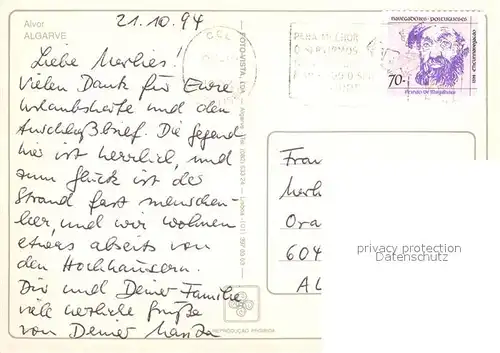 Alvor
ALGARVE
21.10.94
Liebe Marlies!
Vielen Dank für Eure
Urlaubskarte und den
Anschlußbrief. Die Gegend
hier ist herrlich, und
zum Glück ist der
Strand fast menschen-
leer, und wir wohnen
etwas abseits von
den Hochhäusern.
Dir und Deiner Familie
viele herzliche Grüße
von Deiner
FOTO-VISTA, LDA.
Algarve
REPRODUÇÃO PROIBIDA
PARA MELHOR
NAVEGADORES PORTUGUESES
70.-
Fernão de Magalhães
Frau
Ora
604
AL
privacy protection
Datenschutz